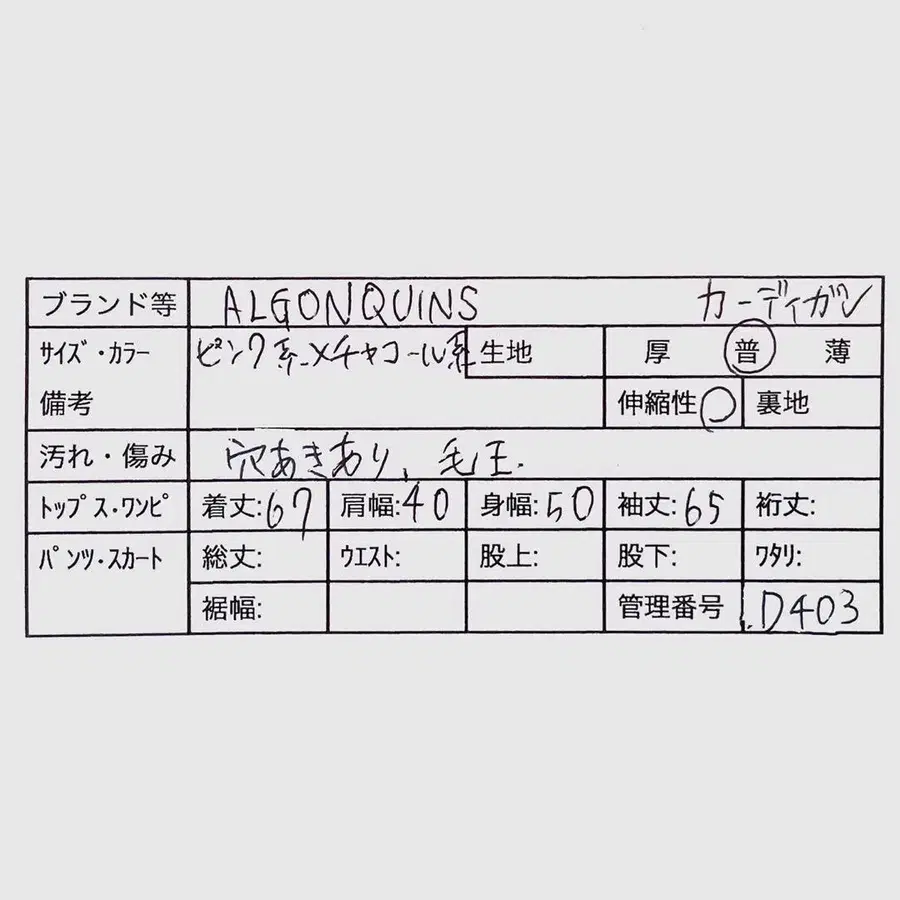 ブランド等 ALGONQUINS カーディガン
サイズ・カラー ピンク系×チャコール系 生地 厚 普 薄
備考 伸縮性 ○ 裏地
汚れ・傷み 穴あきあり、毛玉.
トップス・ワンピ 着丈:67 肩幅:40 身幅:50 袖丈:65 裄丈:
パンツ・スカート 総丈: ウエスト: 股上: 股下: ワタリ:
裾幅: 管理番号 .D403